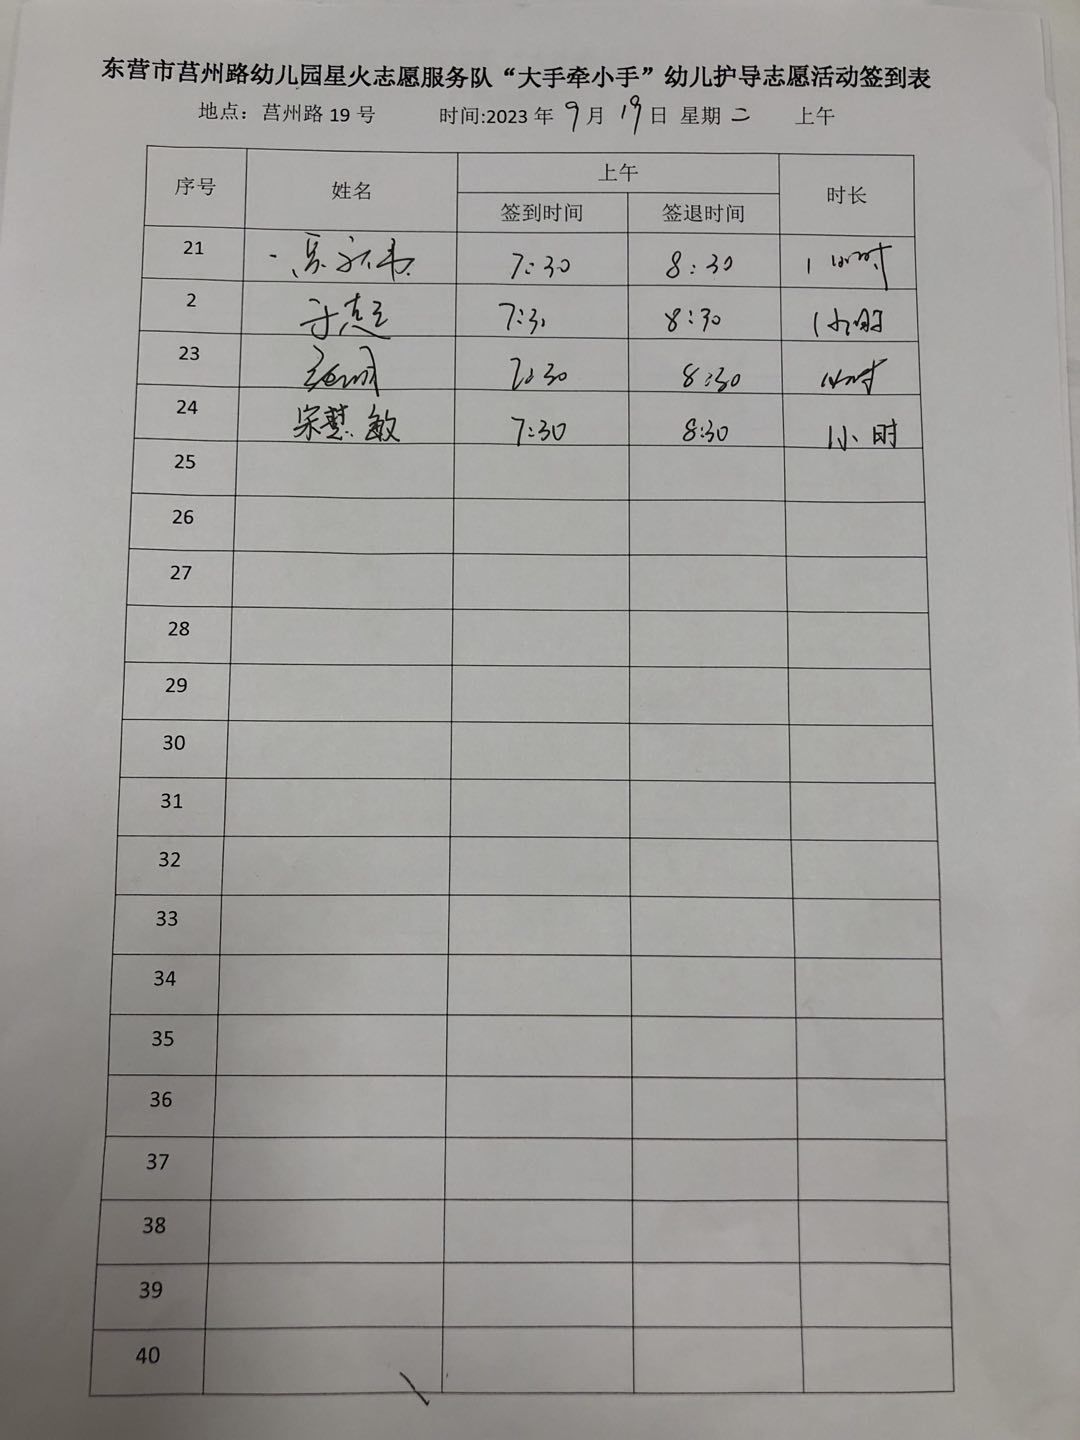 东营市莒州路幼儿园星火志愿服务队“大手牵小手”幼儿护导志愿活动签到表
地点：莒州路 19 号 时间:2023 年 9 月 19 日 星期 二 上午
序号 姓名 上午 时长
签到时间 签退时间
21 7:30 8:30 1小时
2 于 7:30 8:30 1小时
23 7:30 8:30 1小时
24 宋慧敏 7:30 8:30 1小时
25
26
27
28
29
30
31
32
33
34
35
36
37
38
39
40